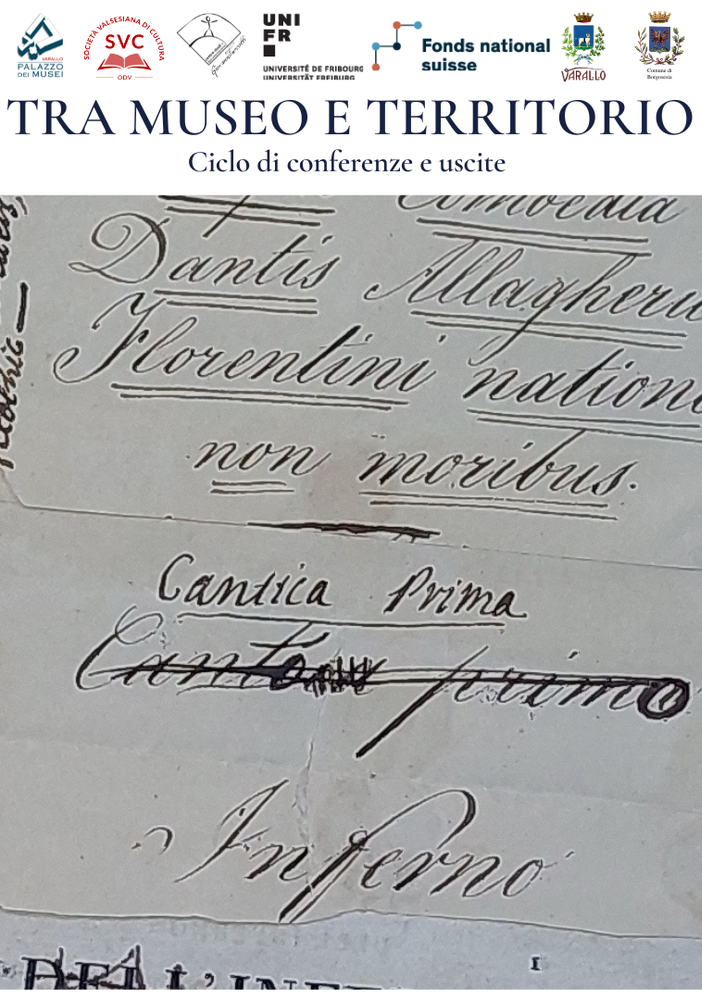 VARALLO
PALAZZO
DEI MUSEI
SOCIETÀ VALSESIANA DI CULTURA
SVC
ODV
UNI
FR
UNIVERSITÉ DE FRIBOURG
UNIVERSITÄT FREIBURG
Fonds national
suisse
VARALLO
Comune di
Borgosesia
TRA MUSEO E TERRITORIO
Ciclo di conferenze e uscite
Comoedia
Dantis Allagherii
Florentini natione
non moribus.
Cantica Prima
primo
Inferno
I
DELL'INF